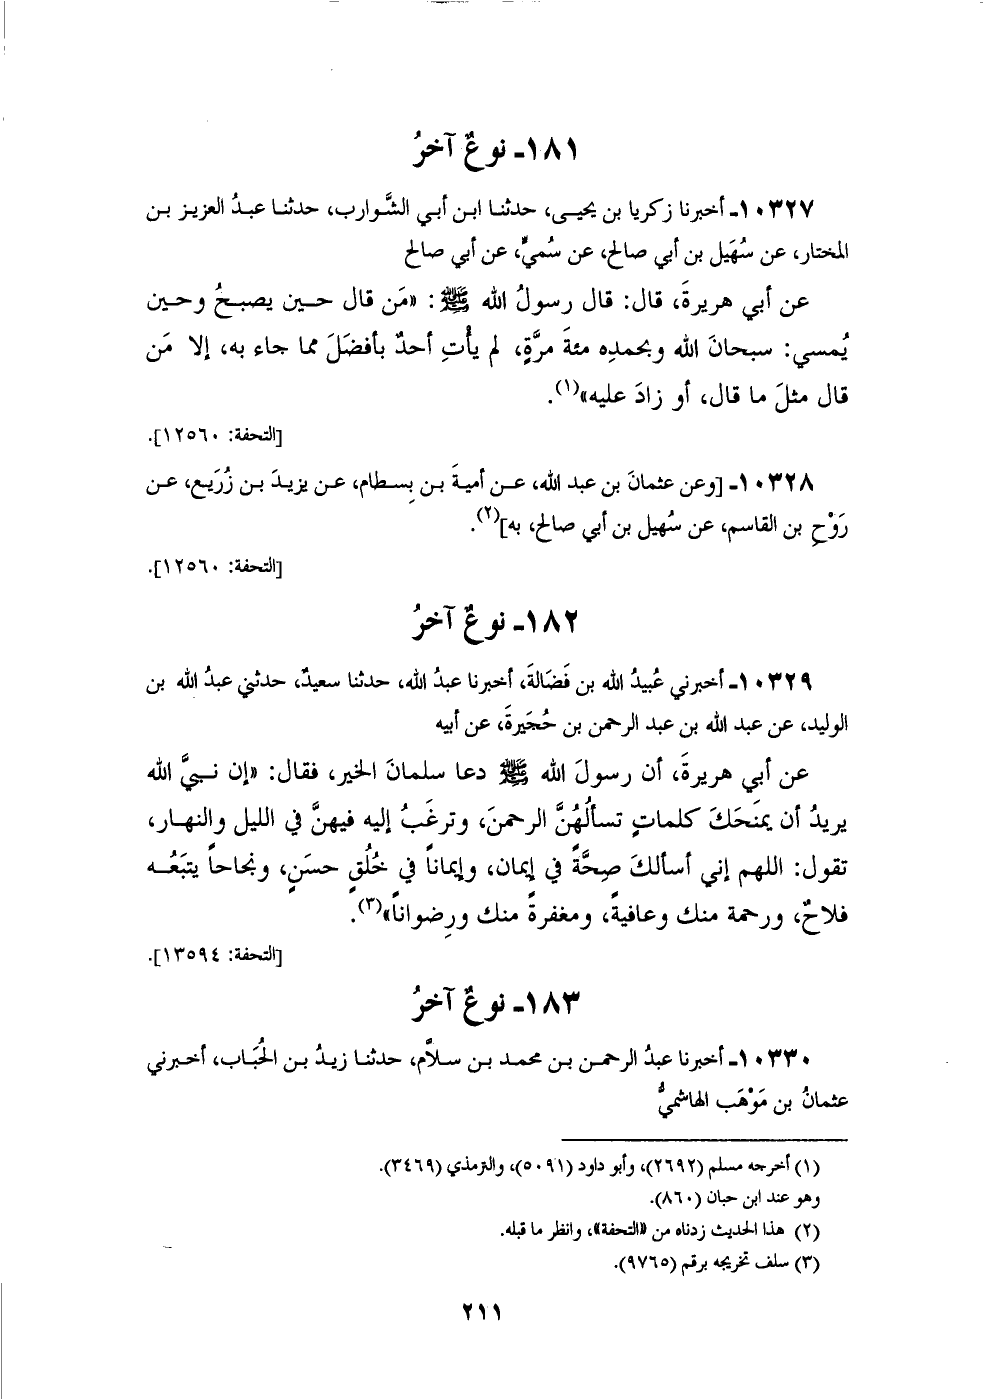 ١٨١ـ نوعٌ آخرُ
١٠٣٢٧ـ أخبرنا زكريا بن يحيى، حدثنا ابن أبي الشَّوارب، حدثنا عبدُ العزيز بن
المختار، عن سُهَيل بن أبي صالح، عن سُميٍّ، عن أبي صالح
عن أبي هريرةَ، قال: قال رسولُ الله ﷺ: «مَن قال حين يصبحُ وحين
يُمسي: سبحانَ الله وبحمدِه مئةَ مرَّةٍ، لم يأْتِ أحدٌ بأفضَلَ مما جاء به، إلا مَن
قال مثلَ ما قال، أو زادَ عليه»(١).
[التحفة: ١٢٥٦٠].
١٠٣٢٨ـ [وعن عثمانَ بن عبد الله، عن أميةَ بن بِسطام، عن يزيدَ بن زُرَيع، عن
رَوْحِ بن القاسم، عن سُهيل بن أبي صالح، به](٢).
[التحفة: ١٢٥٦٠].
١٨٢ـ نوعٌ آخرُ
١٠٣٢٩ـ أخبرني عُبيدُ الله بن فَضَالةَ، أخبرنا عبدُ الله، حدثنا سعيدٌ، حدثني عبدُ الله بن
الوليد، عن عبد الله بن عبد الرحمن بن حُجَيرةَ، عن أبيه
عن أبي هريرةَ، أن رسولَ الله ﷺ دعا سلمانَ الخير، فقال: «إن نبيَّ الله
يريدُ أن يمنَحَكَ كلماتٍ تسألُهُنَّ الرحمنَ، وترغَبُ إليه فيهنَّ في الليل والنهار،
تقول: اللهم إني أسألكَ صِحَّةً في إيمان، وإيماناً في خُلُقٍ حسَنٍ، ونجاحاً يتبَعُه
فلاحٌ، ورحمة منك وعافيةً، ومغفرةً منك ورِضواناً»(٣).
[التحفة: ١٣٥٩٤].
١٨٣ـ نوعٌ آخرُ
١٠٣٣٠ـ أخبرنا عبدُ الرحمن بن محمد بن سلاَّم، حدثنا زيدُ بن الحُبَاب، أخبرني
عثمانُ بن مَوْهَب الهاشميُّ
(١) أخرجه مسلم (٢٦٩٢)، وأبو داود (٥٠٩١)، والترمذي (٣٤٦٩).
وهو عند ابن حبان (٨٦٠).
(٢) هذا الحديث زدناه من «التحفة»، وانظر ما قبله.
(٣) سلف تخريجه برقم (٩٧٦٥).
٢١١